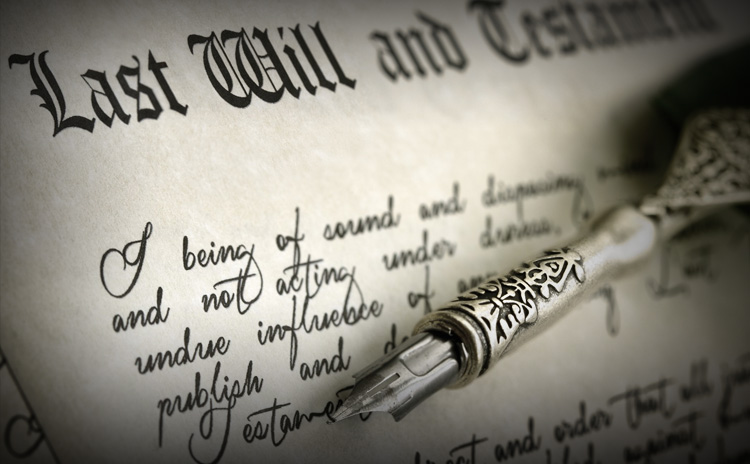 Last Will and Testament
I being of sound and disposing
and not acting under duress,
undue influebce of
publish and
Testame
and order that all
against